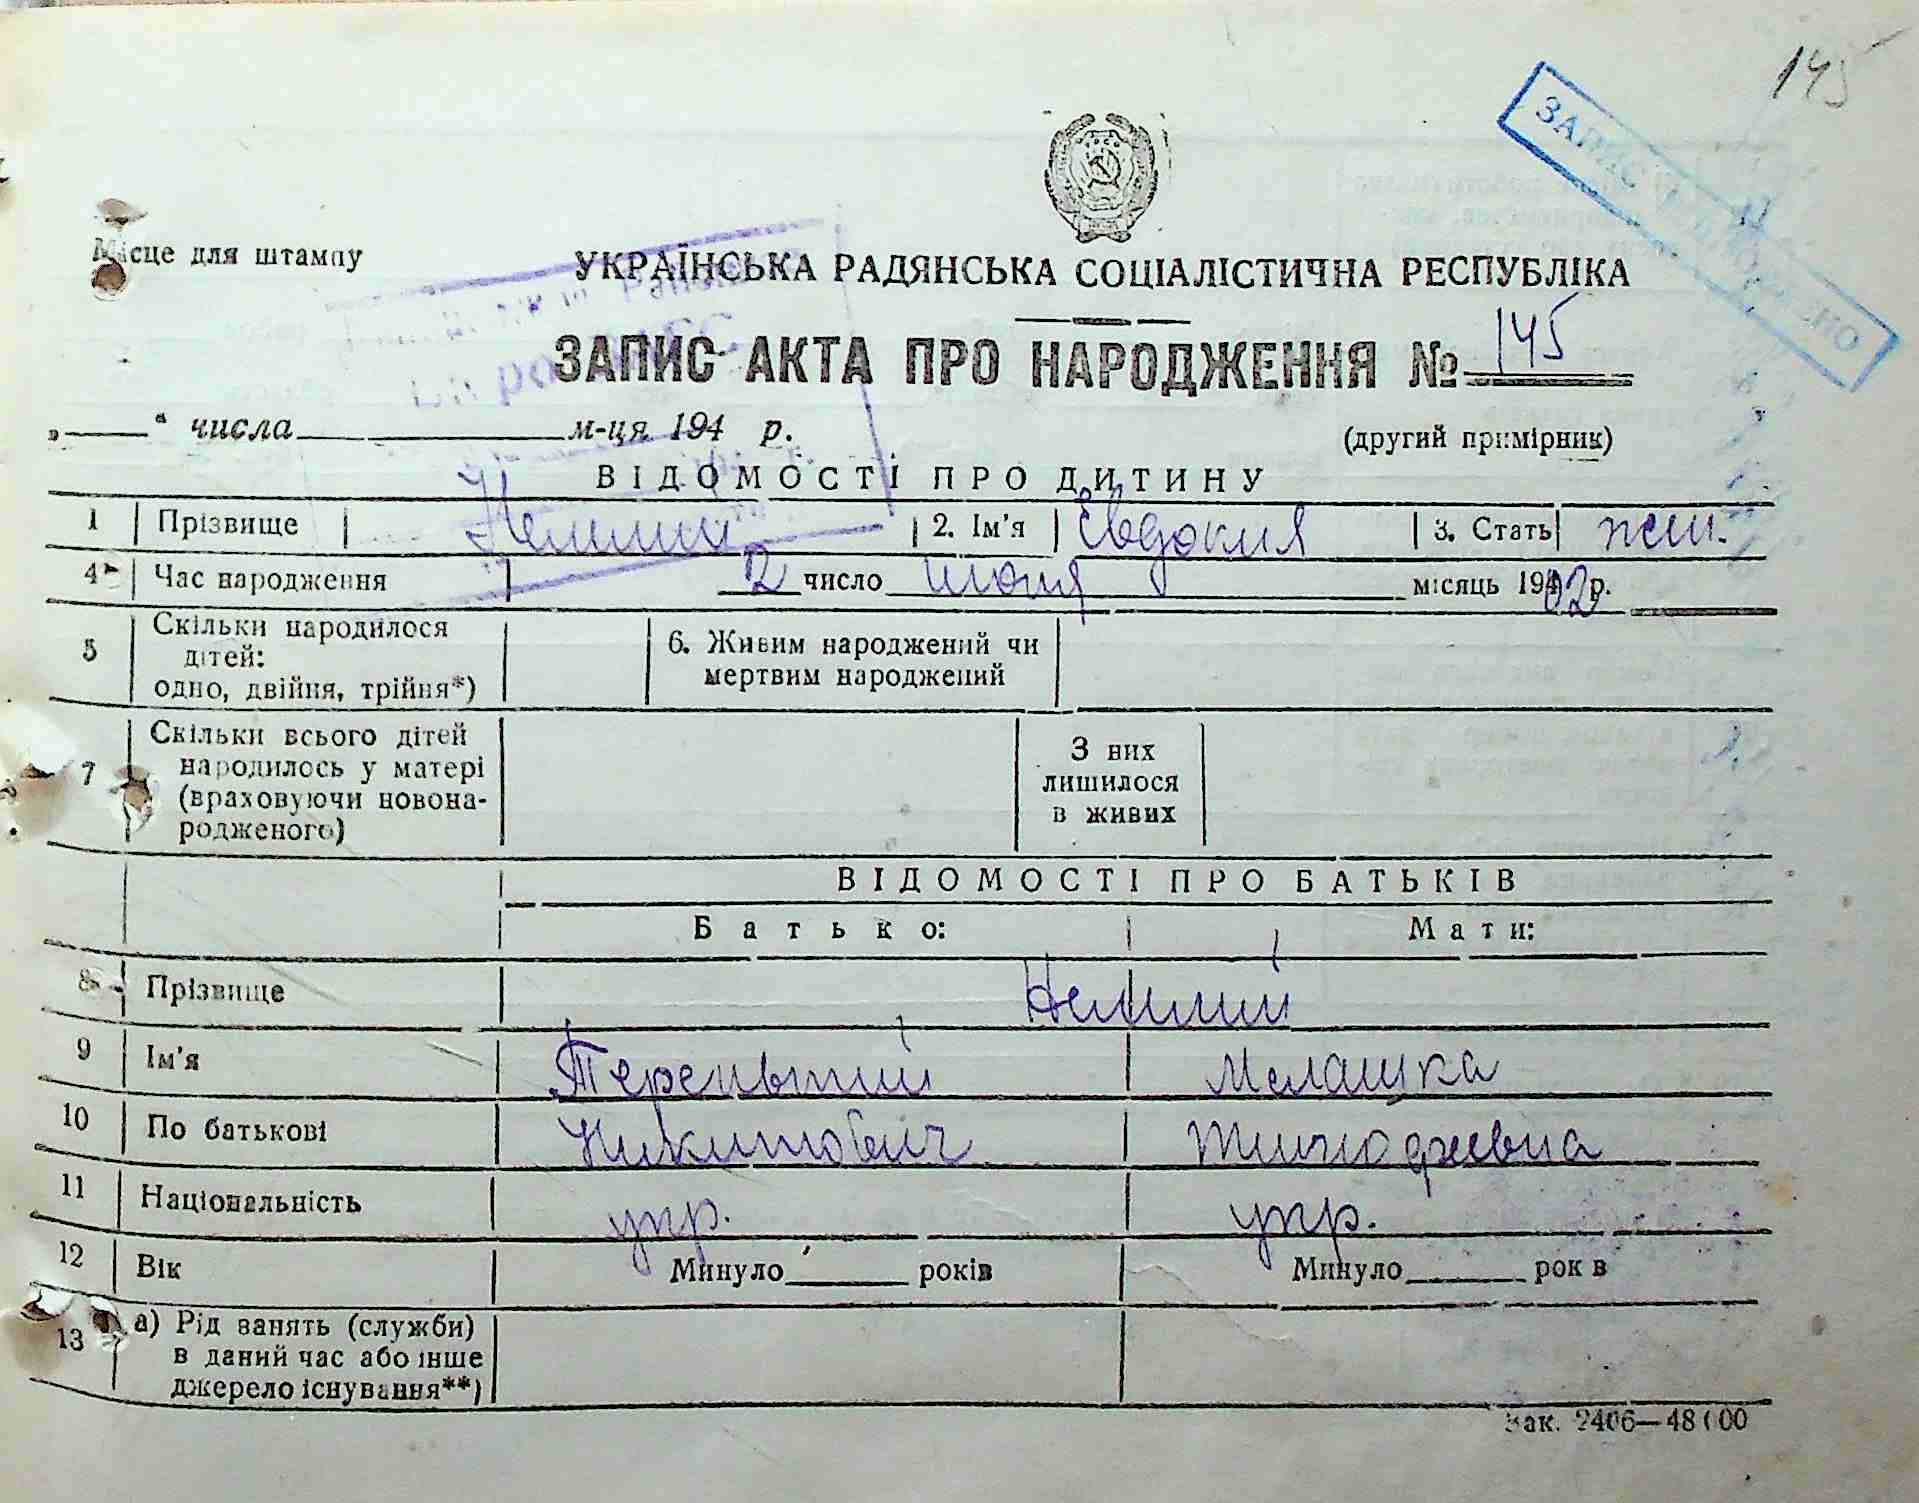 145
ЗАПИС ПОНОВЛЕНО
Місце для штампу
УКРАЇНСЬКА РАДЯНСЬКА СОЦІАЛІСТИЧНА РЕСПУБЛІКА
ЗАПИС АКТА ПРО НАРОДЖЕННЯ № 145
„ “ числа м-ця 194 р.
(другий примірник)
ВІДОМОСТІ ПРО ДИТИНУ
1 Прізвище 2. Ім’я Евдокия 3. Стать жен.
4 Час народження 12 число місяць 1902 р.
5 Скільки народилося
дітей:
одно, двійня, трійня*)
6. Живим народжений чи
мертвим народжений
7 Скільки всього дітей
народилось у матері
(враховуючи новона-
родженого)
З них
лишилося
в живих
ВІДОМОСТІ ПРО БАТЬКІВ
Батько: Мати:
8 Прізвище
9 Ім’я Терентий Мелашка
10 По батькові Никитович Тимофеевна
11 Національність укр. укр.
12 Вік Минуло років Минуло рок в
13 а) Рід занять (служби)
в даний час або інше
джерело існування**)
Зак. 2406—48000